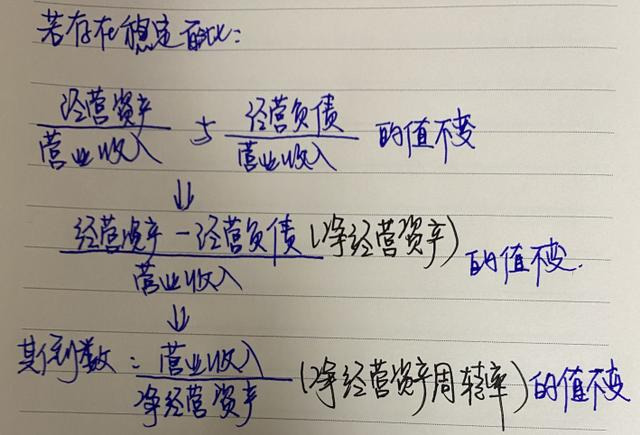 若存在稳定百分比:
经营资产 经营负债
营业收入 与 营业收入 的值不变
⇓
经营资产-经营负债(净经营资产)
营业收入 的值不变.
⇓
其倒数: 营业收入
净经营资产 (净经营资产周转率)的值不变